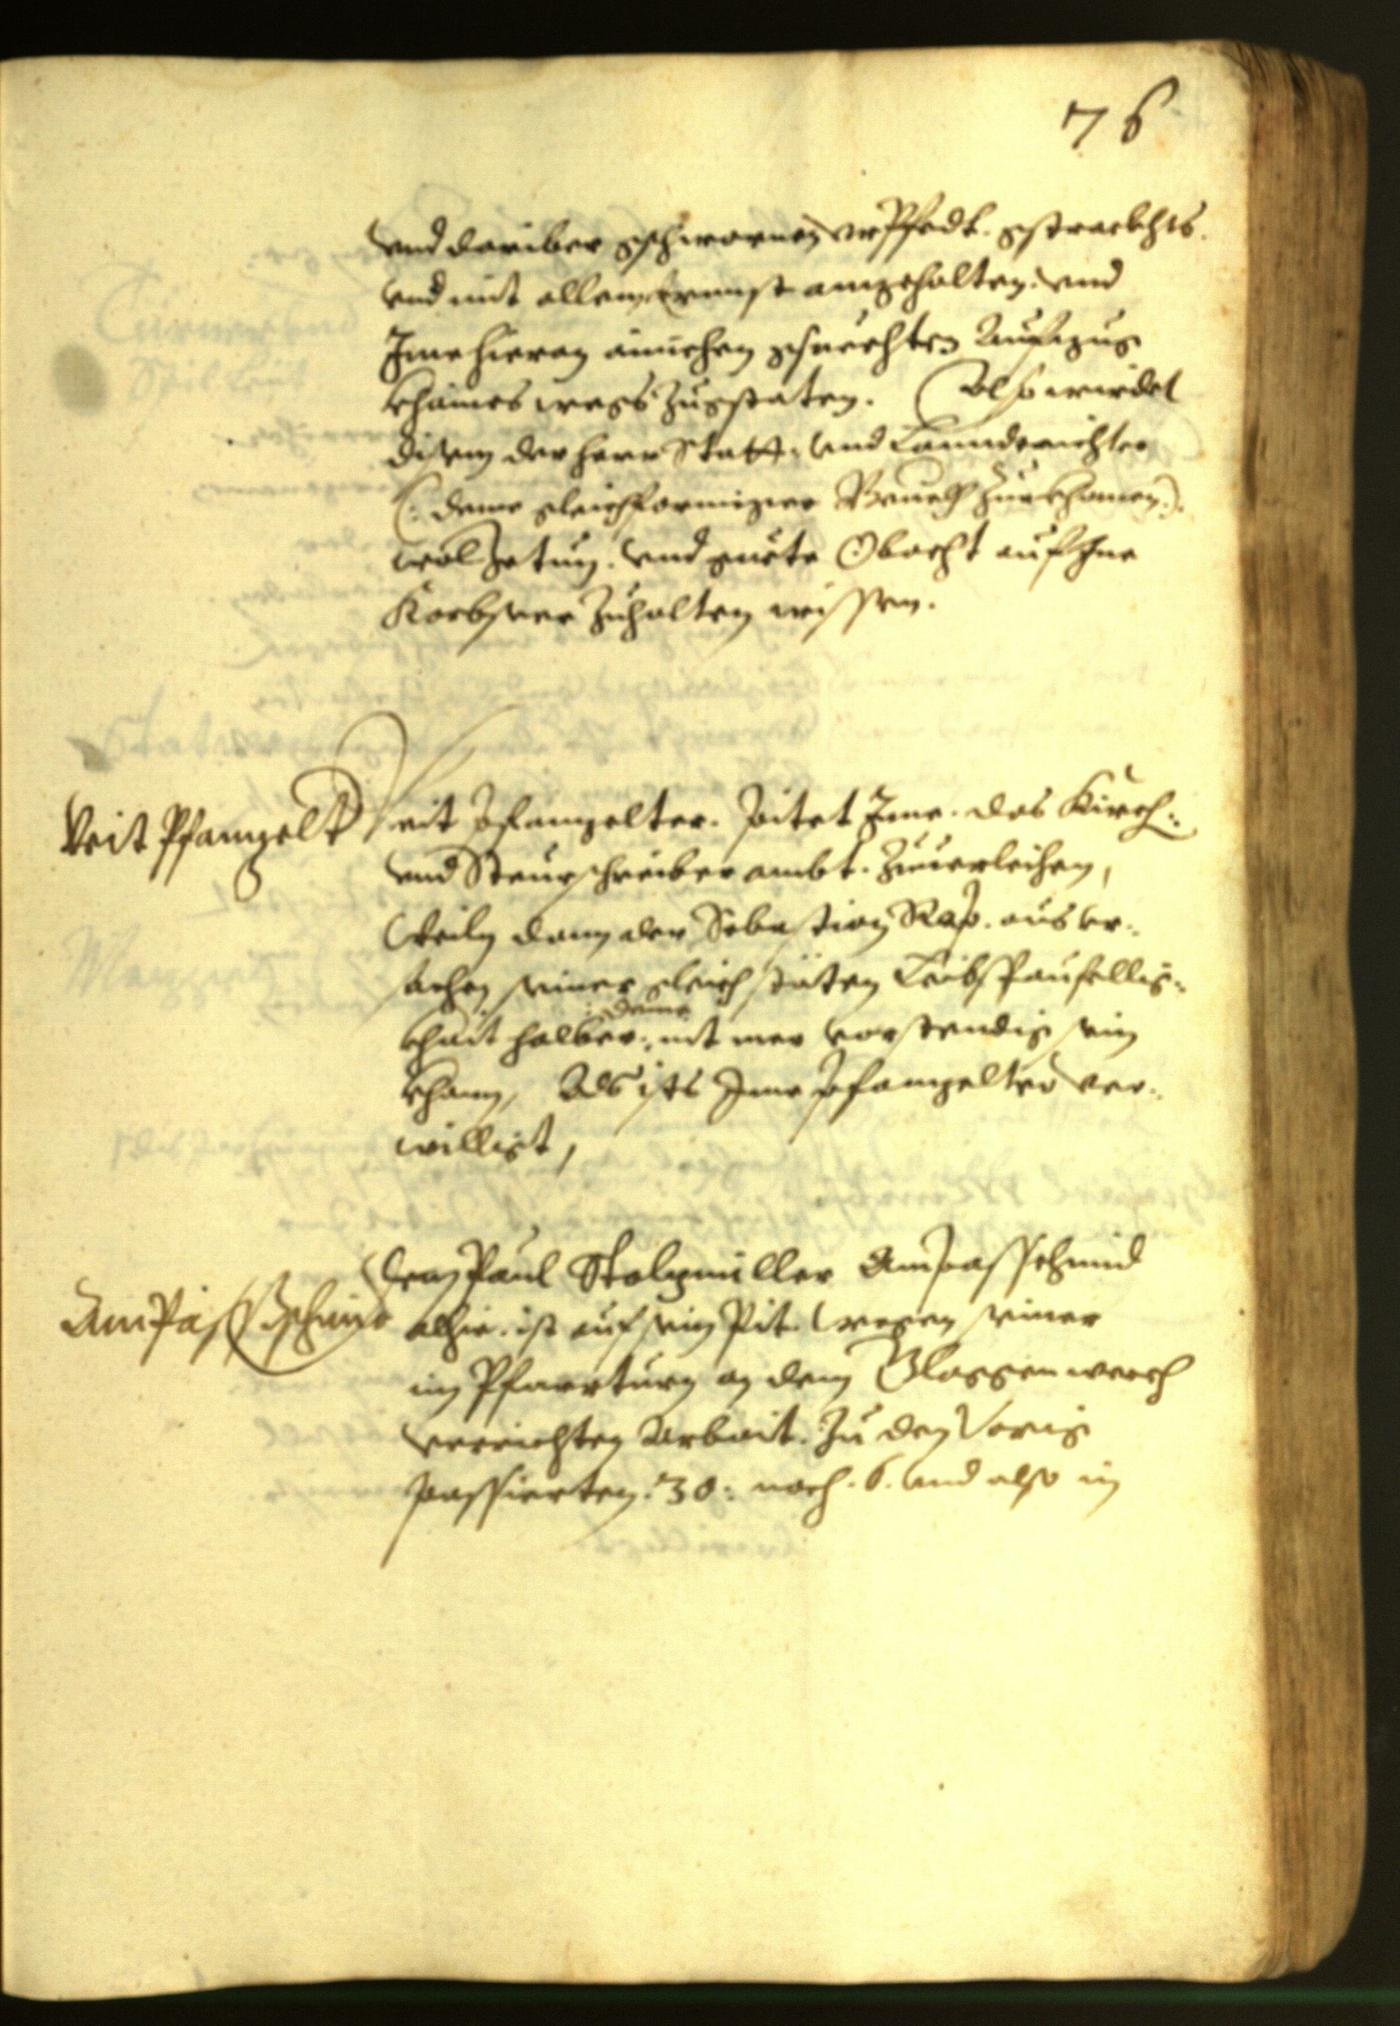 76
vnd dariber gschwornen vrPhedt. gstrackhts.
vnd mit allem Ernnst angehalten. vnd
Ime hieran ainichen gsuechten Aufzug
khaines wegs zugstaten. Also wirdet
disem der herr Statt: vnd Lanndrichter
(: deme gleichformiger Beuelch zuekhomen:).
wol zetun. vnd guete Obacht auf Ine
Korbser zuhalten wissen.
Veit Pfanzelt
Veit Pfanzelter. pitet Ime. das Kirch:
vnd Steurschreiber ambt. Zuuerleihen,
Weiln dann der Sebastian Rap. aus vr:
sachen seiner gleichstäten LeibsPaufellig:
khait halber: deme nit mer vorstendig sein
khann, Als ists Ime Pfanzelter ver:
willigt,
AmPaß Schmid
Dem Paul Stolzmüller Ampasschmid
alhie. ist auf sein Pit. wegen seiner
im Pfarrturn an dem Gloggenwerch
verrichten Arbait. Zu den Vorig
passierten. 30: noch. 6. vnd also in